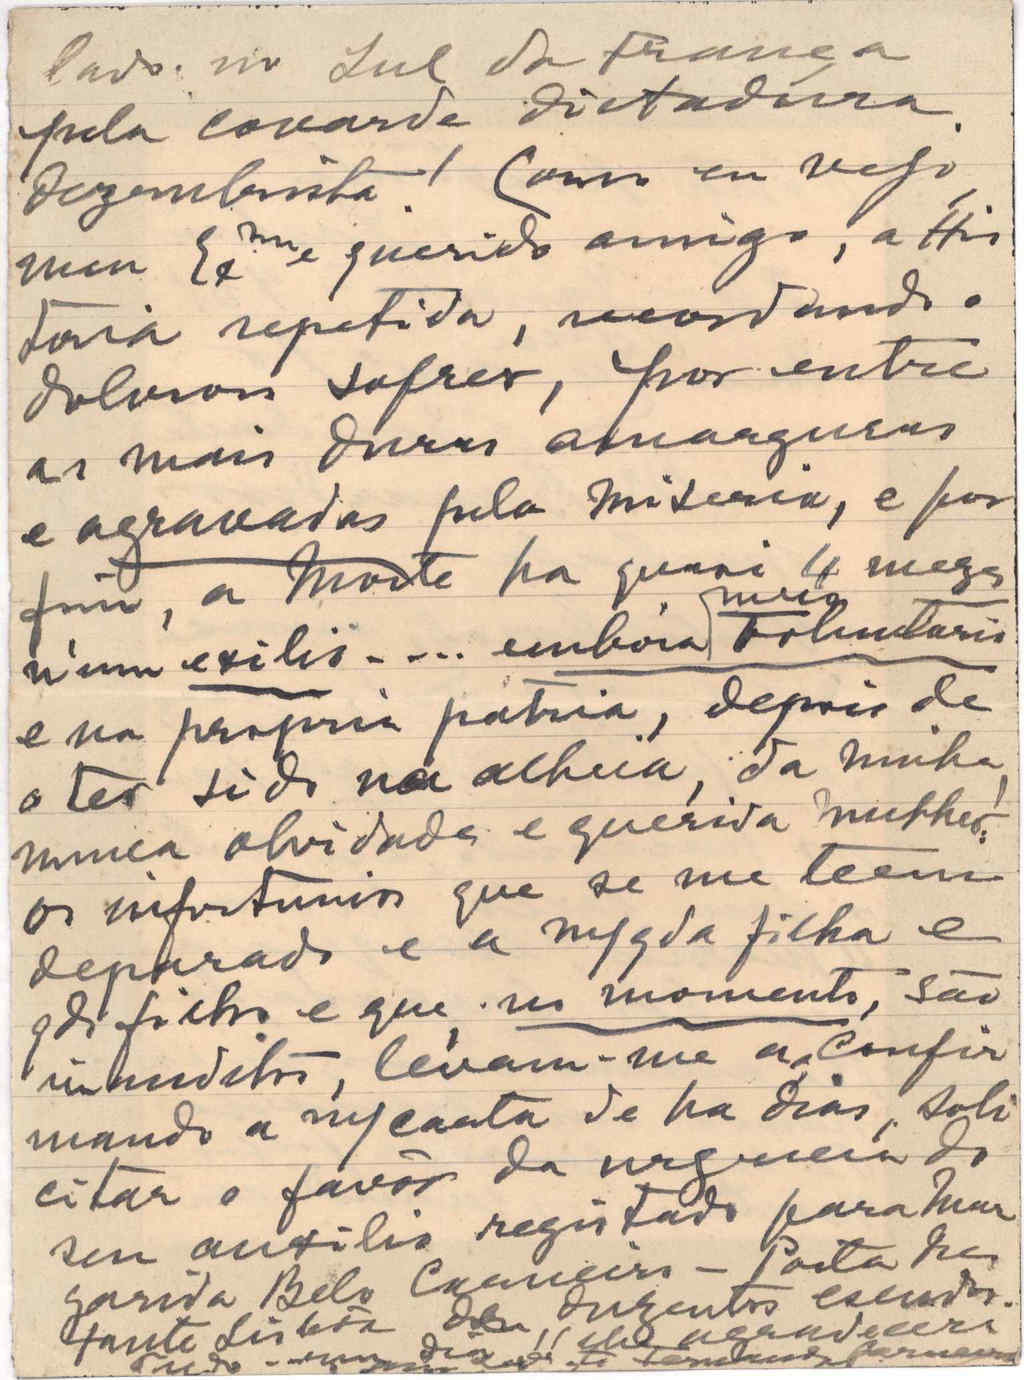 lado no Sul da França
pela covarde dictadura
dezembrista! Como eu vejo,
meu Exmo e querido amigo, a His
toria repetida, recordando o
doloroso sofrer, por entre
as mais duras amarguras
e agravadas pela miseria, e por
fim, a Morte ha quasi 4 mezes
n'um exilio - ... embora meio voluntario
e na propria patria, depois de
o ter sido na alheia, da minha,
nunca olvidada e querida mulher!
Os infortunios que se me teem
deparado e a m/ qda filha e
qdos filhos e que, no momento, são
inauditos, levam-me a, confir
mando a m/ carta de ha dias, soli
citar o favôr da urgencia do
seu auxilio registado para Mar
garida Belo Carneiro - Posta Res
tante Lisbôa duzentos escudos.
dia!! agradecerá
Tudo Fernando Carneiro